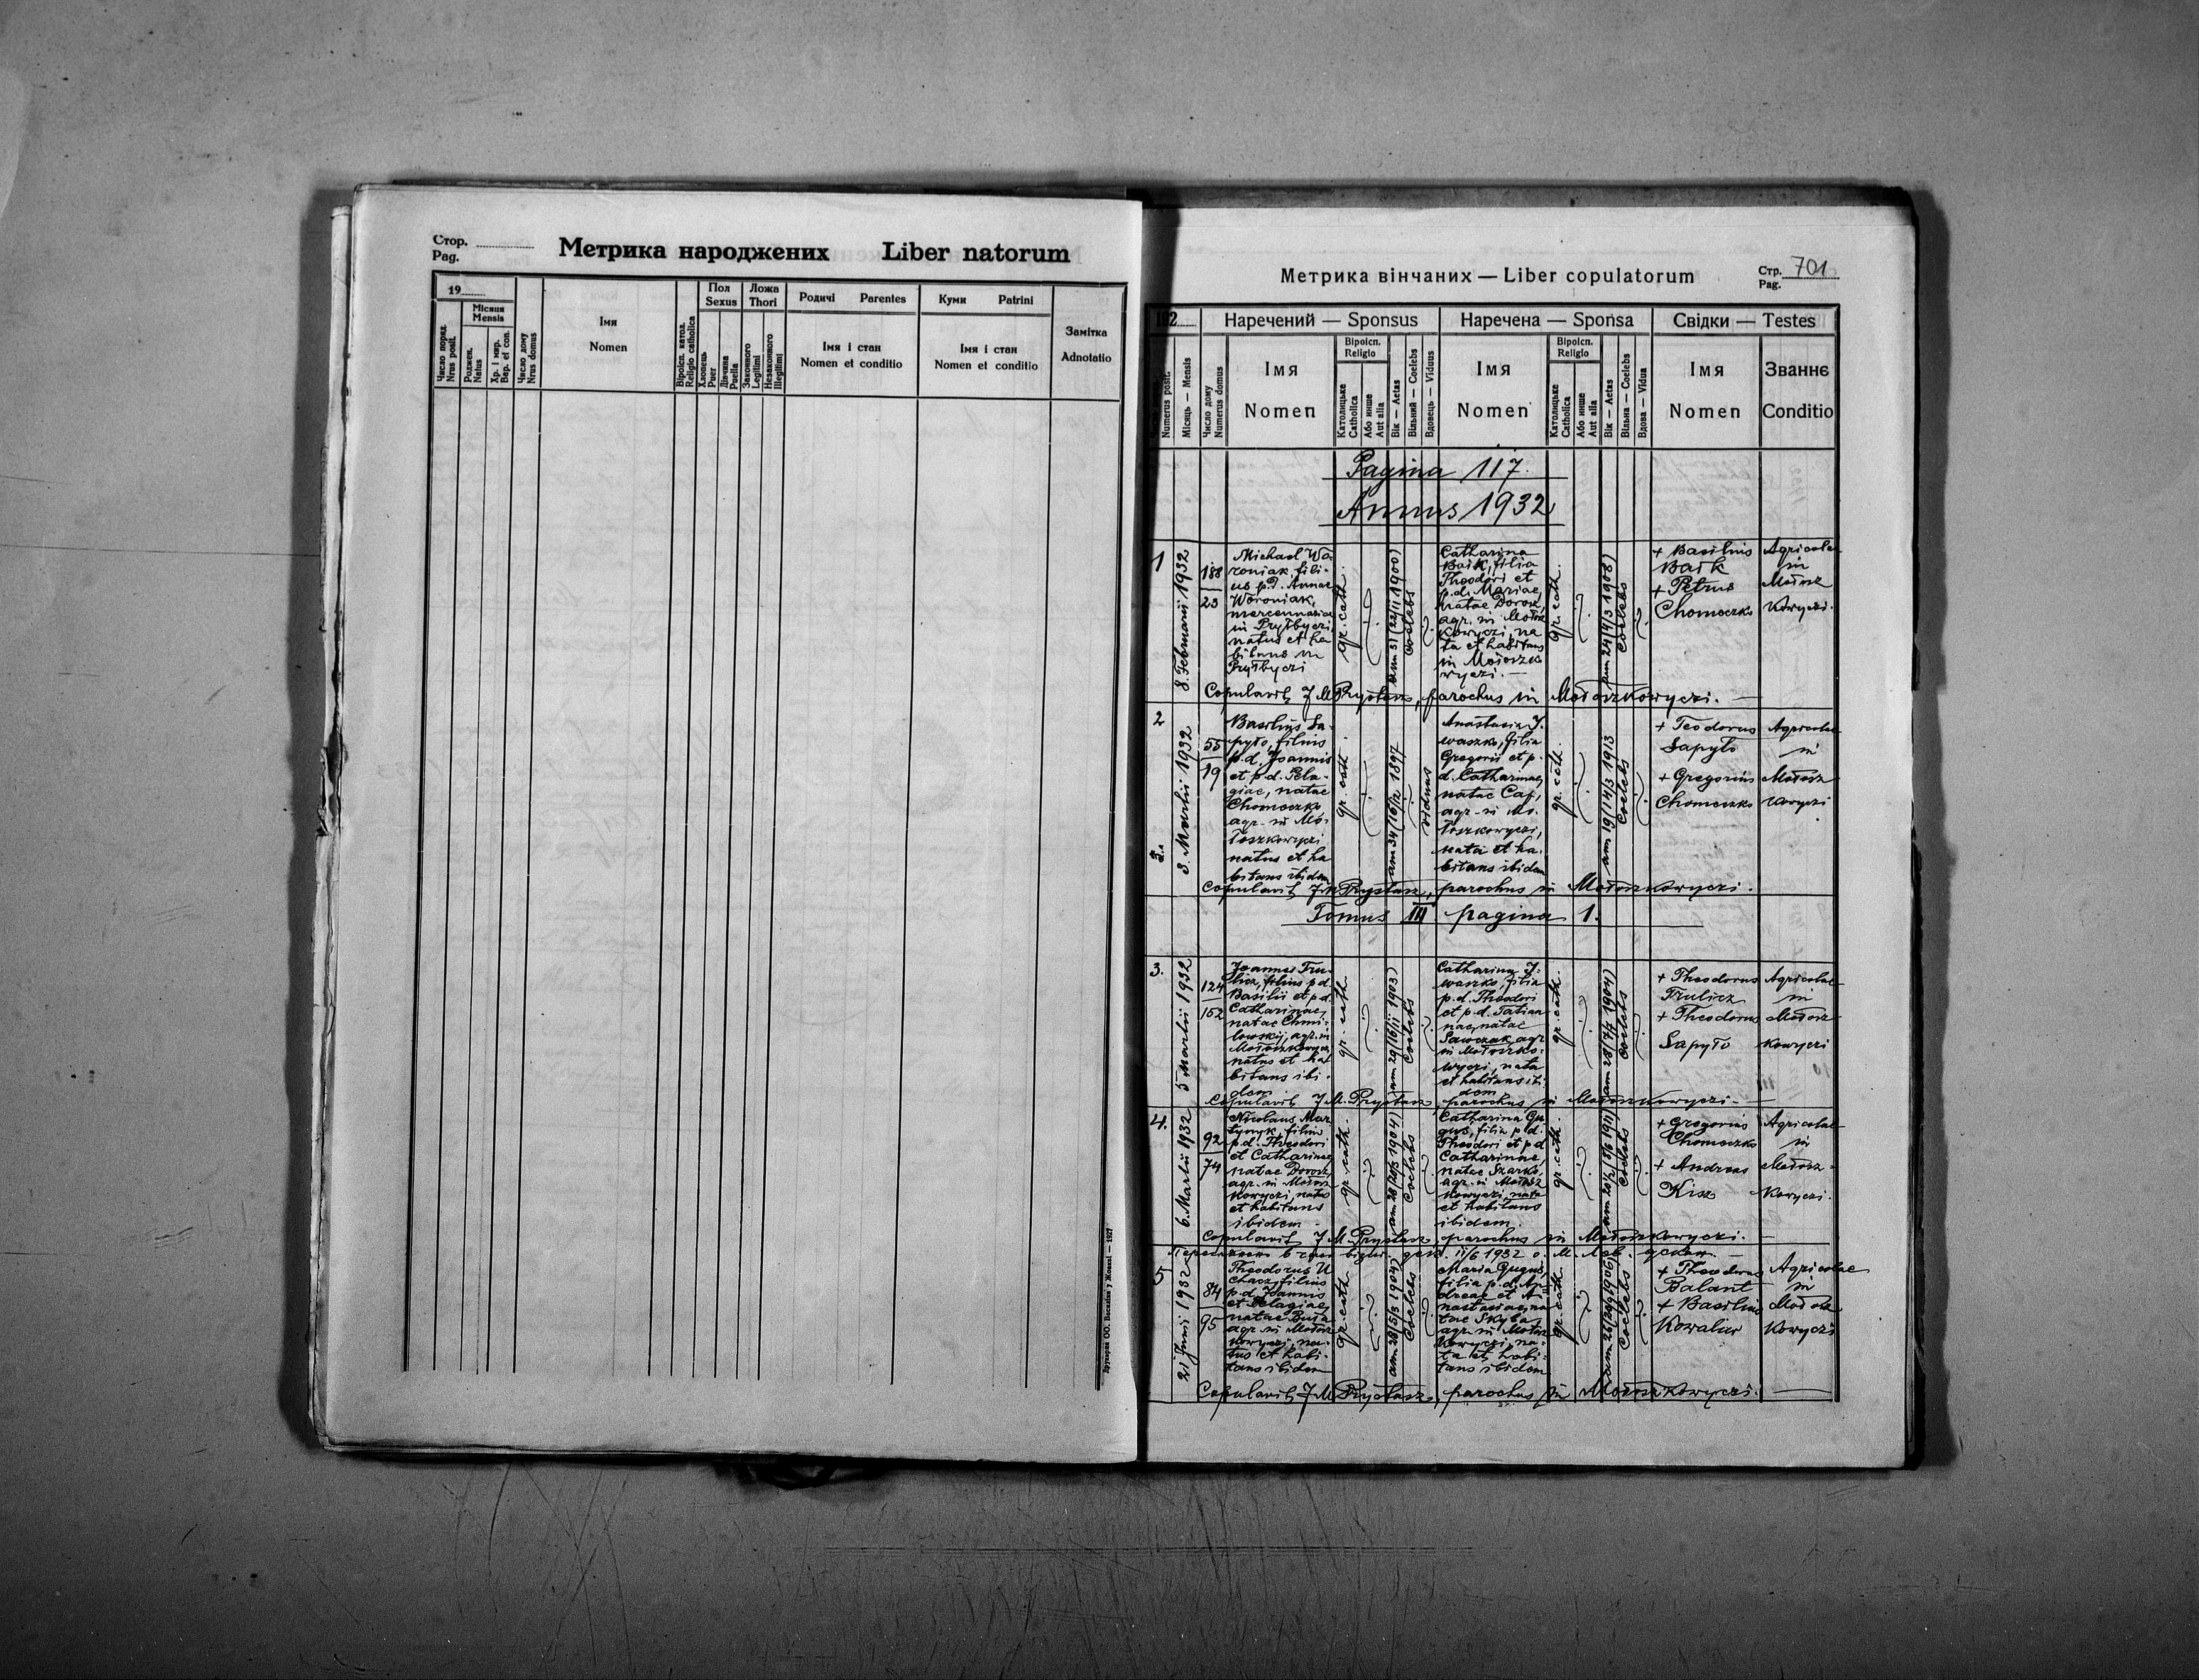 Стор.
Pag.
Метрика народжених Liber natorum
19
Місяця
Mensis
Число поряд.
Nrus posit.
Роджен.
Natus
Хр. і мир.
Bap. et con.
Число дому
Nrus domus
Імя
Nomen
Віроісп. катол.
Religio catholica
Пол
Sexus
Хлопець
Puer
Дівчина
Puella
Ложа
Thori
Законного
Legitimi
Незаконного
Illegitimi
Родичі Parentes
Імя і стан
Nomen et conditio
Куми Patrini
Імя і стан
Nomen et conditio
Замітка
Adnotatio
Друкарня ОО. Василіян у Жовкві — 1927
Метрика вінчаних — Liber copulatorum
Стр. 701
Pag.
192
Numerus posit.
Місяць — Mensis
Наречений — Sponsus
Число дому
Numerus domus
Імя
Nomen
Віроісп.
Religio
Католицьке
Catholica
Або инше
Aut alia
Вік — Aetas
Вільний — Coelebs
Вдовець — Viduus
Наречена — Sponsa
Імя
Nomen
Віроісп.
Religio
Католицьке
Catholica
Або инше
Aut alia
Вік — Aetas
Вільна — Coelebs
Вдова — Vidua
Свідки — Testes
Імя
Nomen
Званнє
Conditio
Pagina 117.
Annus 1932
1
8. Februarii 1932
188
23
Michael Wo
roniak, fili-
us p.d. Annae
Woroniak,
mercennariae
in Pryłbyczi,
natus et ha
bitans in
Pryłbyczi
gr. cath.
ann 31 (22/11 1900)
Coelebs
Catharina
Baik, filia
Theodori et
p.d. Mariae,
natae Dorosz,
agr. in Mołosz
kowyczi, na
ta et habitans
in Mołoszko
wyczi. —
gr. cath.
ann 24 (4/3 1908)
Coelebs
+ Basilius
Baik
+ Petrus
Chomeczko
Agricolae
in
Mołosz
kowyczi.
Copulavit J M Prystasz, parochus in Mołoszkowyczi. —
2
3. Martii 1932
55
19
Basilius Sa-
pyło, filius
p.d. Joannis
et p.d. Pela-
giae, natae
Chomeczko
agr. in Mo-
łoszkowyczi
natus et ha
bitans ibidem
gr. cath.
1897
viduus
Anastasia I-
waszko, filia
Gregorii et p.
d. Catharinae,
natae Cap,
agr. in Mo-
łoszkowyczi,
nata et ha-
bitans ibidem
gr. cath.
ann 19 (4/3 1913
Coelebs
+ Teodorus
Sapyło
+ Gregorius
Chomeczko
Agricolae
in
Mołosz
kowyczi
Copulavit J M Prystasz, parochus in Mołoszkowyczi.
Tomus III pagina 1.
3.
5 Martii 1932
124
152
Joannes Tru-
licz, filius p.d.
Basilii et p.d.
Catharinae,
natae Chmi-
lowskij, agr. in
Mołoszkowyczi
natus et ha
bitans ibi-
dem
gr. cath
ann 29 (16/11 1903)
Coelebs
Catharina I-
waszko, filia
p.d. Theodori
et p.d. Tatian
nae, natae
Sawczak, agr.
in Mołoszko-
wyczi, nata
et habitans ibi-
dem
gr. cath.
ann 28 (7/7 1904)
Coelebs
+ Theodorus
Trulicz
+ Theodorus
Sapyło
Agricolae
in
Mołosz
kowyczi
Copulavit J M. Prystasz, parochus in Mołoszkowyczi. —
4.
6. Martii 1932
92
74
Nicolaus Mar
tynyk, filius
p.d. Theodori
et Catharinae,
natae Dorosz,
agr. in Mołosz
kowyczi, natus
et habitans
ibidem
gr. cath.
Coelebs
Catharina Gu
gus, filia p.d.
Theodori et p.d.
Catharinae,
natae Szarko,
agr. in Mołosz
kowyczi, nata
et habitans
ibidem.
gr. cath.
Coelebs
+ Gregorius
Chomeczko
+ Andreas
Kisz
Agricolae
in
Mołosz-
kowyczi.
Copulavit J M. Prystasz, parochus in Mołoszkowyczi. —
11/6 1932
5
21 Junii 1932
84
95
Theodorus U
chacz, filius
p.d. Joannis
et Pelagiae,
natae Buja
agr. in Mołosz
kowyczi, na-
tus et habi-
tans ibidem
gr. cath
ann 28 (5/3 1904)
Coelebs
Maria Gugus,
filia p.d. An
dreae et A-
nastasiae, na
tae Skyba,
agr. in Mołosz
kowyczi, na-
ta et habi-
tans ibidem
gr. cath
Coelebs
+ Theodorus
Balant
+ Basilius
Kowaliw
Agricolae
in
Mołosz
kowyczi
Copulavit J M Prystasz, parochus in Mołoszkowyczi. —